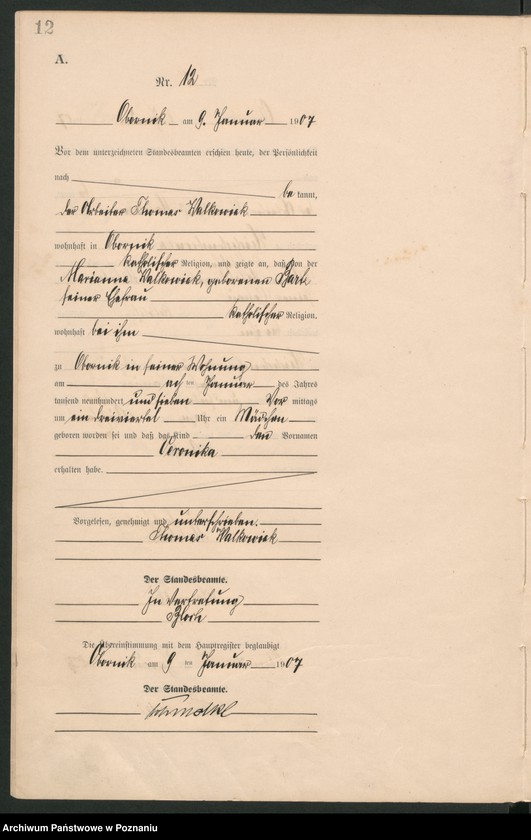 12
A.
Nr. 12
Obornik am 9. Januar 1907
Vor dem unterzeichneten Standesbeamten erschien heute, der Persönlichkeit
nach be kannt,
der Arbeiter Thomas Walkowiak
wohnhaft in Obornik
katholischer Religion, und zeigte an, daß von der
Marianna Walkowiak, geborenen
seiner Ehefrau
katholischer Religion,
wohnhaft bei ihm
zu Obornik in seiner Wohnung
am ach ten Januar des Jahres
tausend neunhundert und sieben Vor mittags
um ein dreiviertel Uhr ein Mädchen
geboren worden sei und daß das Kind den Vornamen
Veronika
erhalten habe.
Vorgelesen, genehmigt und unterschrieben.
Thomas Walkowiak
Der Standesbeamte.
In Vertretung
Die Übereinstimmung mit dem Hauptregister beglaubigt
Obornik am 9 ten Januar 1907
Der Standesbeamte.
Archiwum Państwowe w Poznaniu